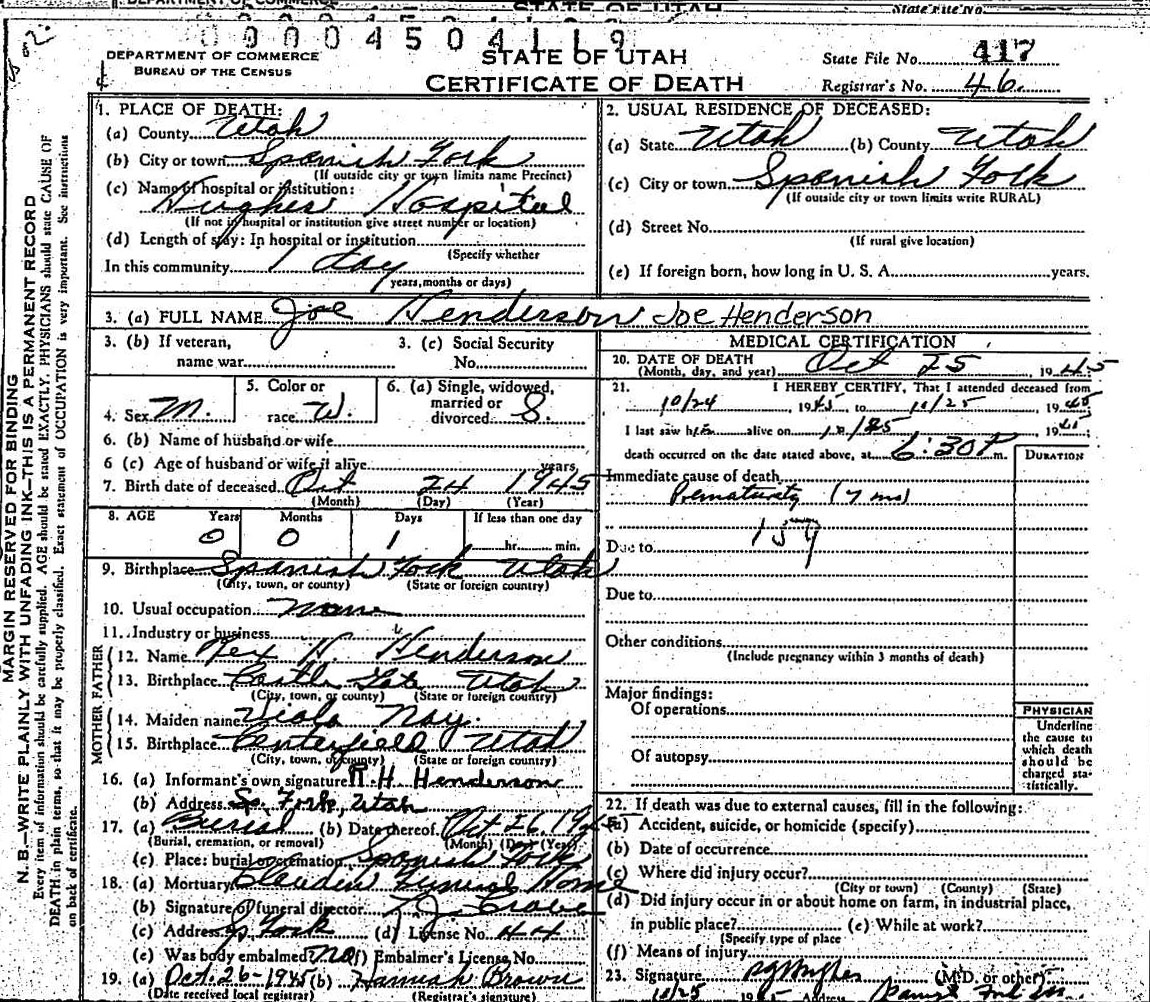 DEPARTMENT OF COMMERCE
STATE OF UTAH
State File No.
0000450 4119
DEPARTMENT OF COMMERCE
BUREAU OF THE CENSUS
STATE OF UTAH
CERTIFICATE OF DEATH
State File No. 417
Registrar's No. 46.
MARGIN RESERVED FOR BINDING
N. B.—WRITE PLAINLY WITH UNFADING INK—THIS IS A PERMANENT RECORD
Every item of information should be carefully supplied. AGE should be stated EXACTLY. PHYSICIANS should state CAUSE OF
DEATH in plain terms, so that it may be properly classified. Exact statement of OCCUPATION is very important. See instructions
on back of certificate.
1. PLACE OF DEATH:
(a) County Utah
(b) City or town Spanish Fork
(If outside city or town limits name Precinct)
(c) Name of hospital or institution:
Hughes Hospital
(If not in hospital or institution give street number or location)
(d) Length of stay: In hospital or institution
(Specify whether
In this community 1 day
years, months or days)
2. USUAL RESIDENCE OF DECEASED:
(a) State Utah (b) County Utah
(c) City or town Spanish Fork
(If outside city or town limits write RURAL)
(d) Street No.
(If rural give location)
(e) If foreign born, how long in U. S. A. years.
3. (a) FULL NAME Joe Henderson Joe Henderson
3. (b) If veteran,
name war
3. (c) Social Security
No.
4. Sex M.
5. Color or
race W.
6. (a) Single, widowed,
married or
divorced S.
6. (b) Name of husband or wife
6 (c) Age of husband or wife if alive years
7. Birth date of deceased Oct 24 1945
(Month) (Day) (Year)
8. AGE Years Months Days If less than one day
0 0 1 hr. min.
9. Birthplace Spanish Fork Utah
(City, town, or county) (State or foreign country)
10. Usual occupation None
11. Industry or business
FATHER
12. Name Rex H. Henderson
13. Birthplace Castle Gate Utah
(City, town, or county) (State or foreign country)
MOTHER
14. Maiden name Viola Nay.
15. Birthplace Centerfield Utah
(City, town, or county) (State or foreign country)
16. (a) Informant's own signature R. H. Henderson
(b) Address Sp. Fork, Utah
17. (a) Burial (b) Date thereof Oct 26, 1945
(Burial, cremation, or removal) (Month) (Day) (Year)
(c) Place: burial or cremation Spanish Fork
18. (a) Mortuary Claudin Funeral Home
(b) Signature of funeral director
(c) Address Sp Fork (d) License No. 44
(e) Was body embalmed No (f) Embalmer's License No.
19. (a) Oct. 26-1945 (b) Hannah Brown
(Date received local registrar) (Registrar's signature)
MEDICAL CERTIFICATION
20. DATE OF DEATH Oct 25 1945
(Month, day, and year)
21. I HEREBY CERTIFY, That I attended deceased from
10/24, 1945, to 10/25, 1945
I last saw him alive on 10/25 1945;
death occurred on the date stated above, at 6:30P m.
DURATION
Immediate cause of death
Prematurity (7 mo)
159
Due to
Due to
Other conditions
(Include pregnancy within 3 months of death)
Major findings:
Of operations
Of autopsy
PHYSICIAN
Underline
the cause to
which death
should be
charged sta-
tistically.
22. If death was due to external causes, fill in the following:
(a) Accident, suicide, or homicide (specify)
(b) Date of occurrence
(c) Where did injury occur?
(City or town) (County) (State)
(d) Did injury occur in or about home on farm, in industrial place,
in public place? (e) While at work?
(Specify type of place
(f) Means of injury
23. Signature Hughes (M.D. or other)
10/25 1945 Address